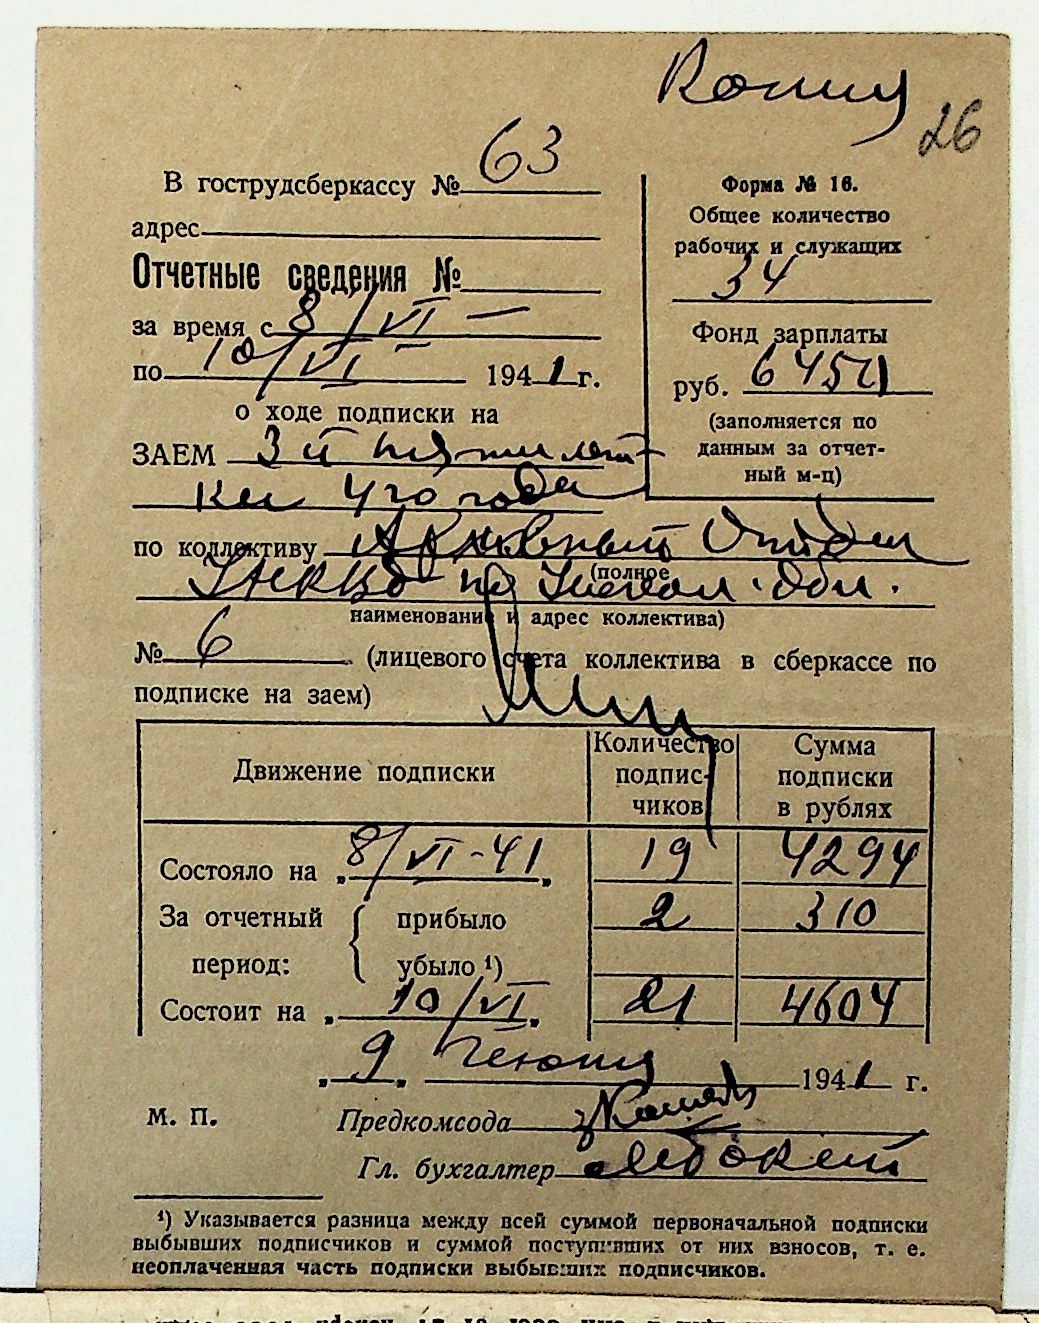 Копия
26
В гострудсберкассу № 63
адрес
Отчетные сведения №
за время с 8/VI —
по 10/VI 1941 г.
о ходе подписки на
ЗАЕМ 3й пятилет-
ки 4го года
по коллективу Архивный Отдел
УНКВД по Обл.
(полное
наименование и адрес коллектива)
№ 6 (лицевого счета коллектива в сберкассе по
подписке на заем)
Форма № 16.
Общее количество
рабочих и служащих
34
Фонд зарплаты
руб. 6450
(заполняется по
данным за отчет-
ный м-ц)
Движение подписки
Количество
подпис-
чиков
Сумма
подписки
в рублях
Состояло на „8/VI-41„ 19 4294
За отчетный период: прибыло 2 310
убыло ¹)
Состоит на „10/VI„ 21 4604
„9„ Июня 1941 г.
М. П.
Предкомсода
Гл. бухгалтер
¹) Указывается разница между всей суммой первоначальной подписки
выбывших подписчиков и суммой поступивших от них взносов, т. е.
неоплаченная часть подписки выбывших подписчиков.